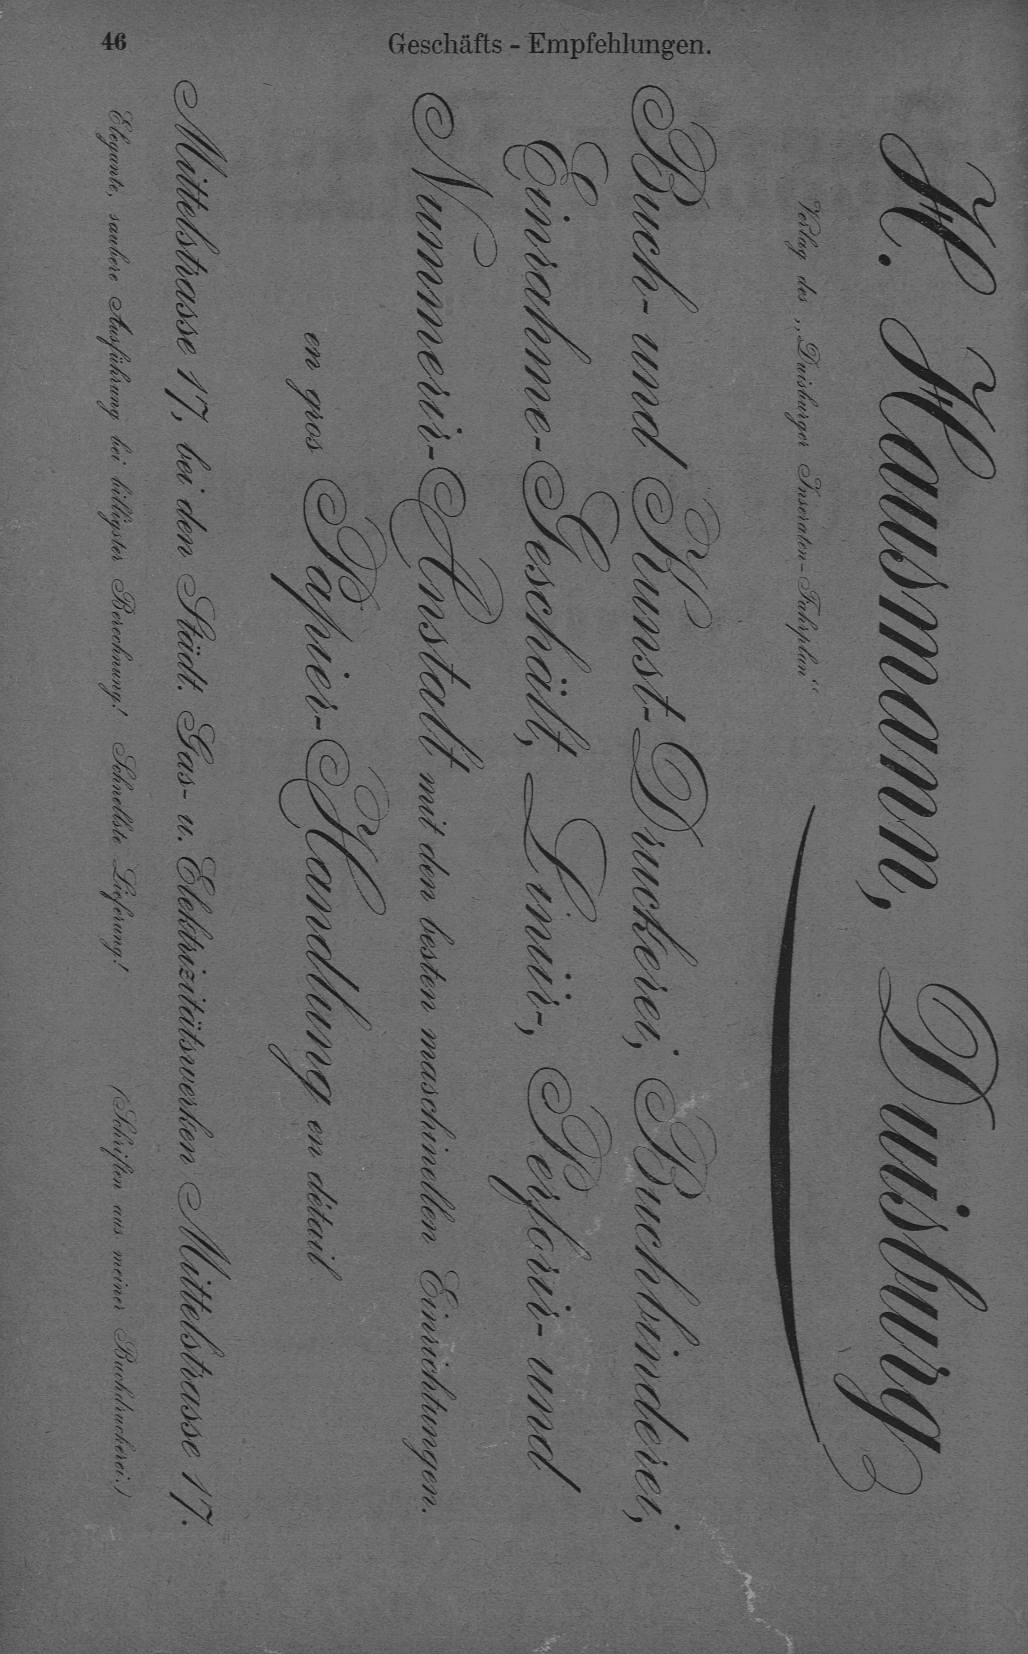 46
Geschäfts - Empfehlungen.
H. Hausmann, Duisburg
Verlag des „Duisburger Inseraten-Fahrplan“
Buch- und Kunst-Druckerei, Buchbinderei,
Einrahme-Geschäft, Linür-, Perforir- und
Nummerir-Anstalt mit den besten maschinellen Einrichtungen.
en gros Papier-Handlung en détail
Mittelstrasse 17, bei den Städt. Gas- u. Elektrizitätswerken Mittelstrasse 17.
Elegante, saubere Ausführung bei billigster Berechnung! Schnellste Lieferung! (Schriften aus meiner Buchdruckerei.)